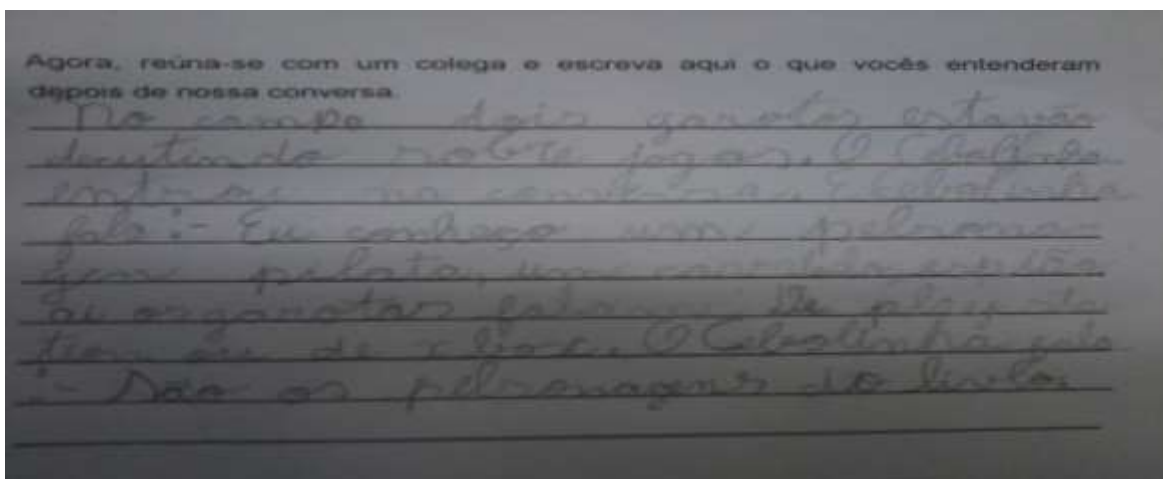 Agora, reúna-se com um colega e escreva aqui o que vocês entenderam
depois de nossa conversa.
No campo dois garotos estavão
discutindo sobre jogos. O Cebolinha
entrou na conversa. E Cebolinha
fala :- Eu conheço um pelsona
gem pelata, um
ai os garotos falam De play sta
tion ou de xbox. O Cebolinha fala
:- São os pelsonagens do livlo.